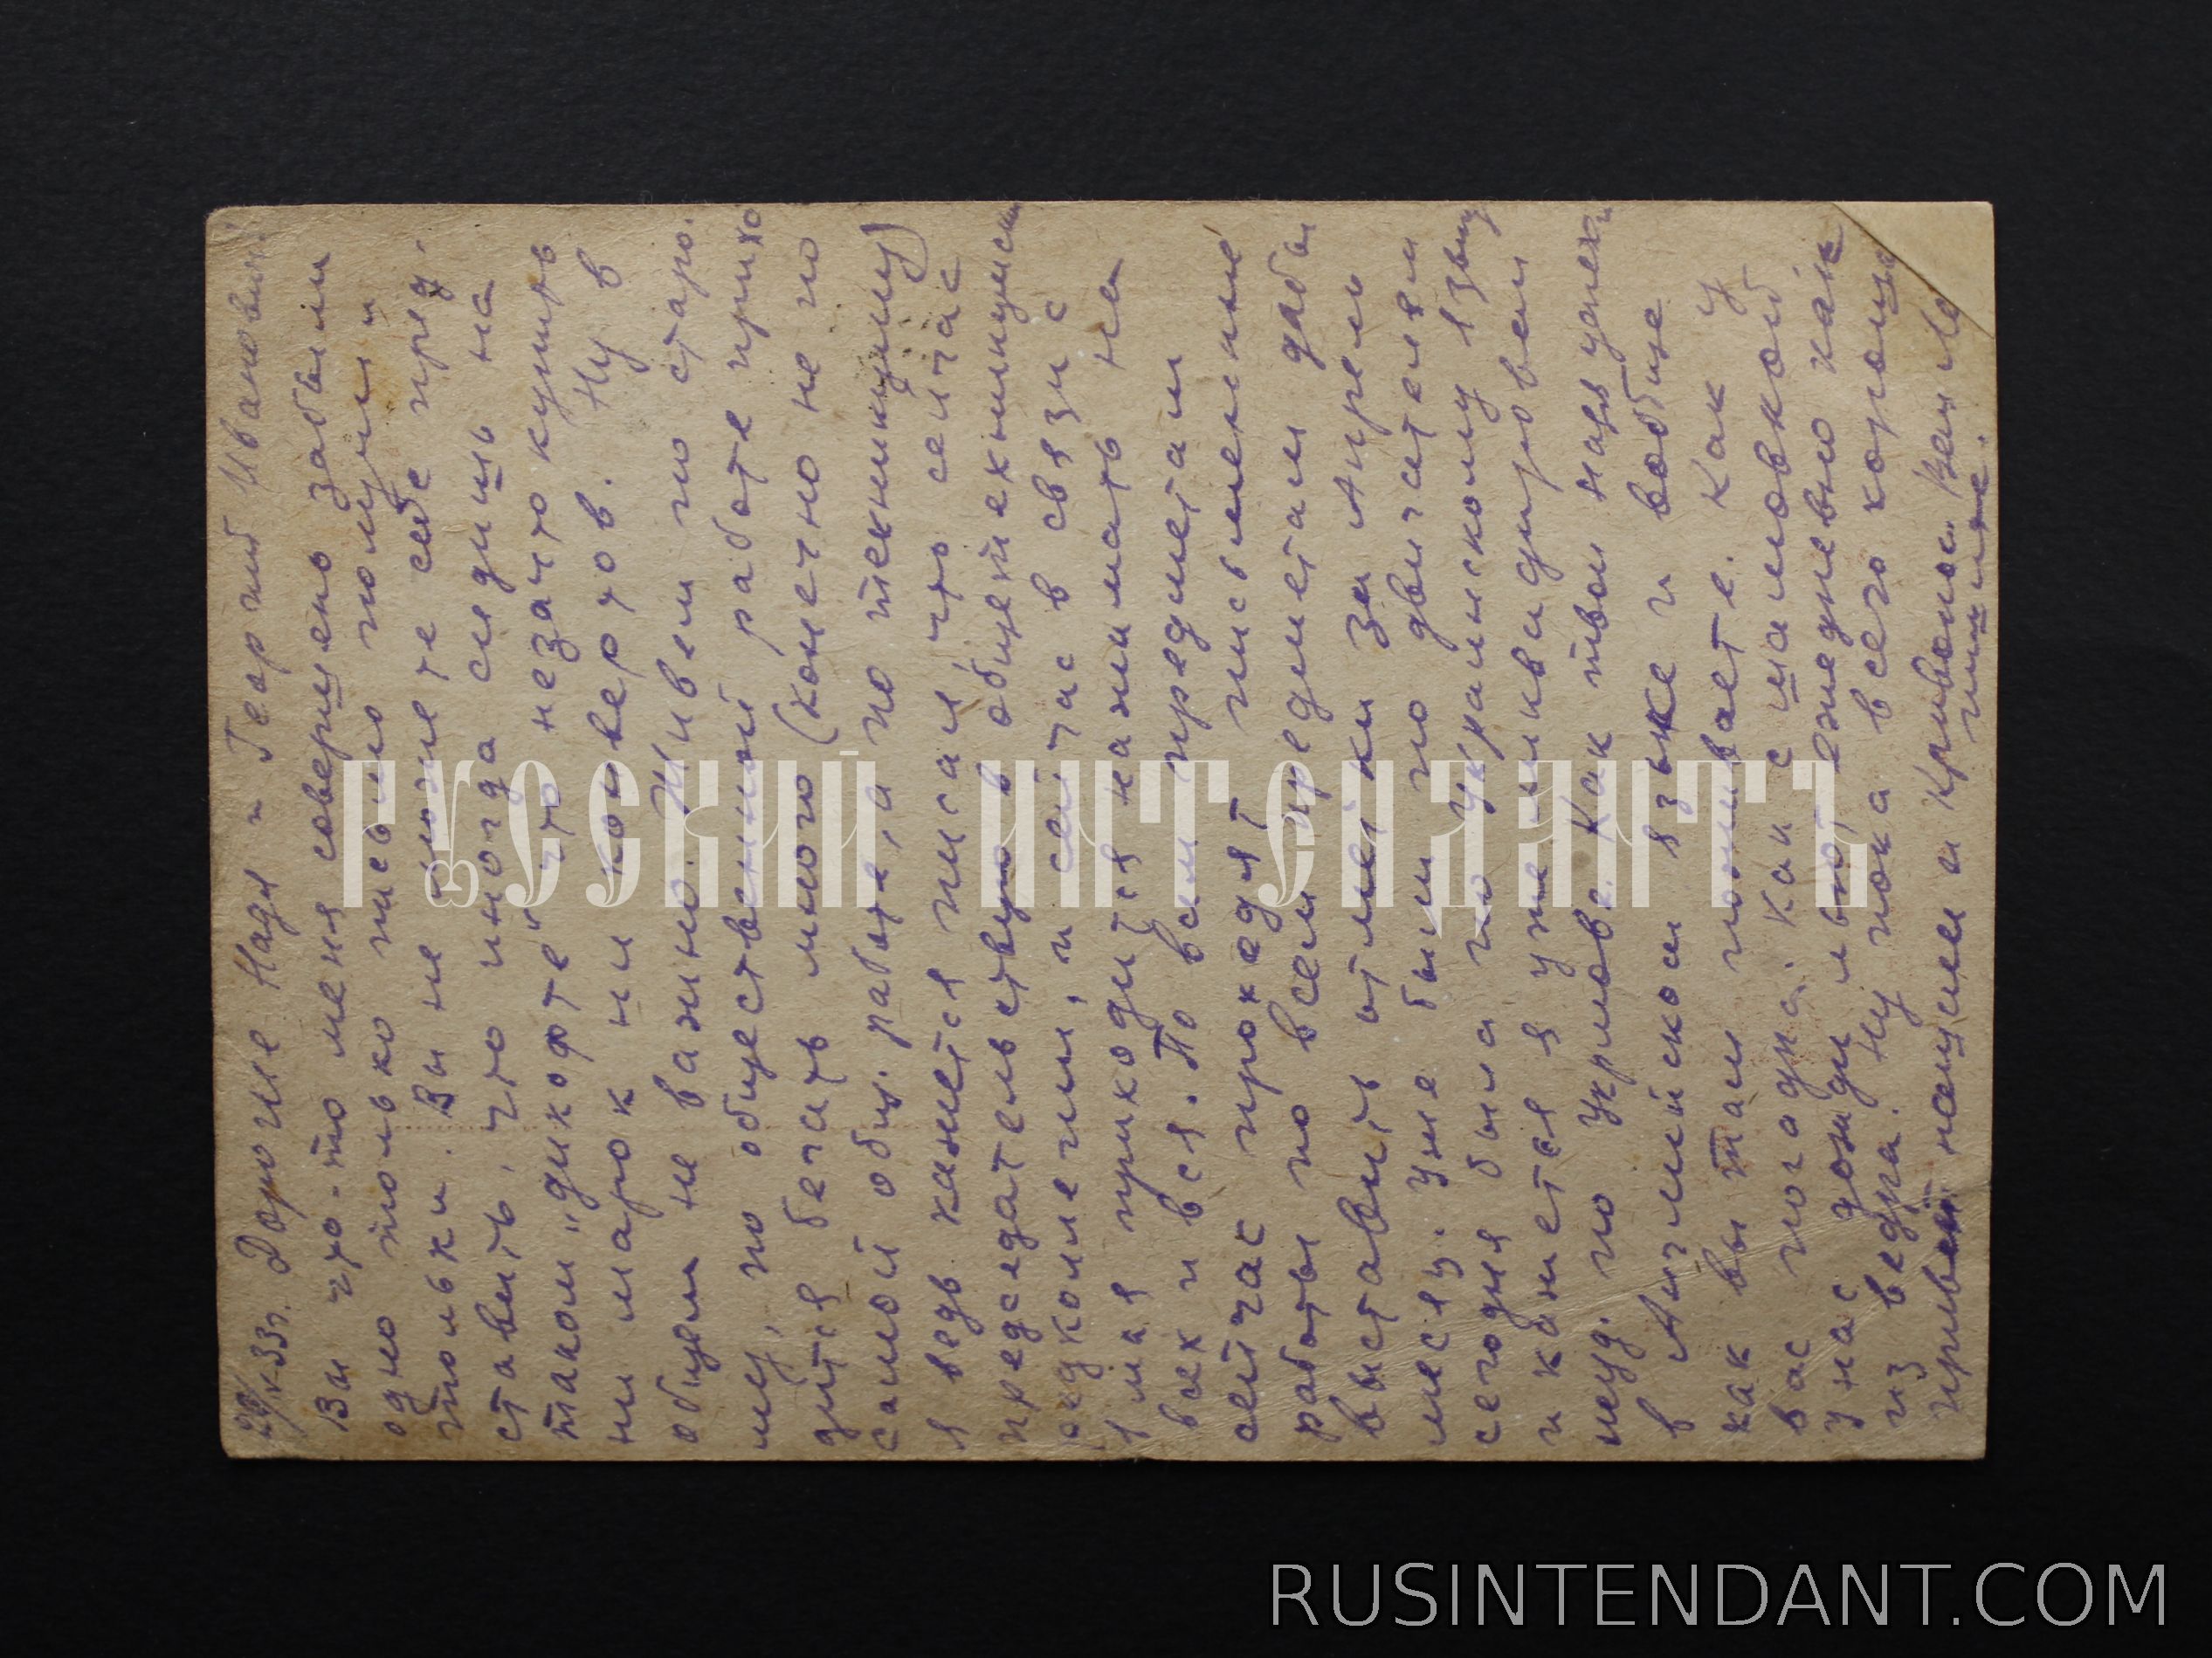 29/V-33г. Дорогие Надя и Георгий Иванович!
Вы что-то меня совершено забыли
одно только письмо получили и
только. Вы не можете себе пред-
ставить, что иногда сидишь на
таком „дикофте" что незачто купить
ни марок ни конвертов. Ну в
общем не важно. Живем по старо.
му, по общественной работе прихо
дится бегать много (конечно не по
самой общ. работе, а по техникуму)
я ведь кажется писал что сейчас
председательствую в общетехникумском
едколлегии, и сейчас в связи с
1 мая приходится нажимать на
всех и вся. По всем предметам
сейчас проходят письменные
работы по всем предметам дабы
выставить отметки за Апрель
месяц. Уже были по двигателям
сегодня была по украинскому языку
и кажется я уже ликвидировал
неуд. по Укрмове. Как твои Надя успехи
в Английском языке и вообще
как вы там поживаете. Как у
вас погода. Как с шамовкой
у нас дожди льют ежедневно как
из ведра. Ну пока всего хороше
привет нашим и Кривонос. Ваш Ле
пишите.
РУССКИЙ ИНТЕНДАНТЪ
RUSINTENDANT.COM